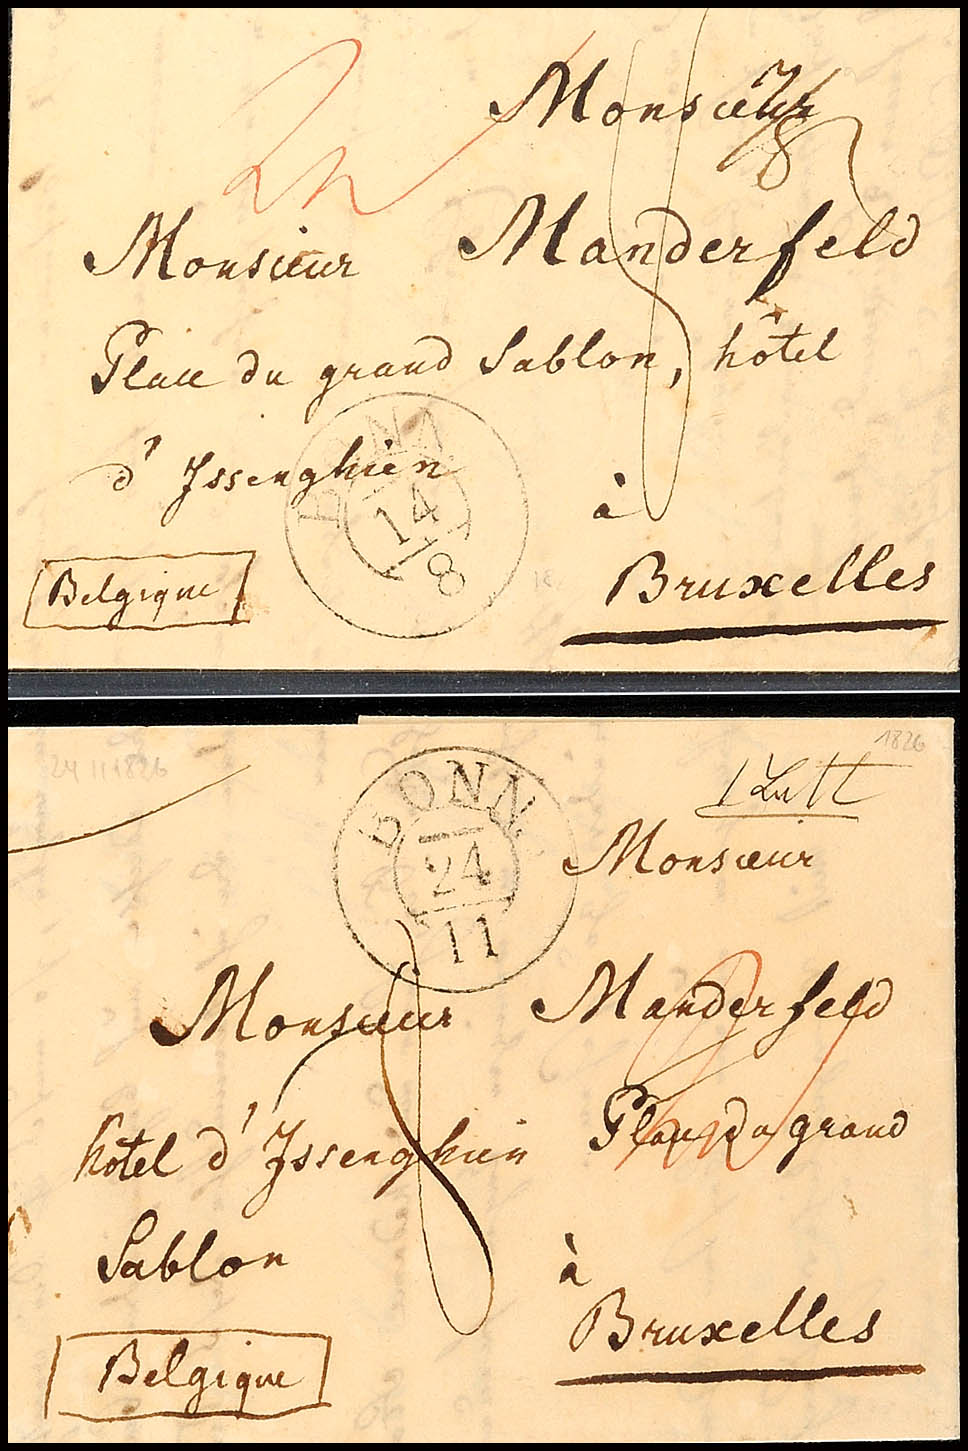 Monsieur
Monsieur Manderfeld
Place du grand Sablon, hôtel
d'Issenghien
à
Belgique
Bruxelles
BONN
14
8
1826
24 11 1826
BONN
24
11
Monsieur
Monsieur Manderfeld
hôtel d'Issenghien Place du grand
Sablon
à
Bruxelles
Belgique